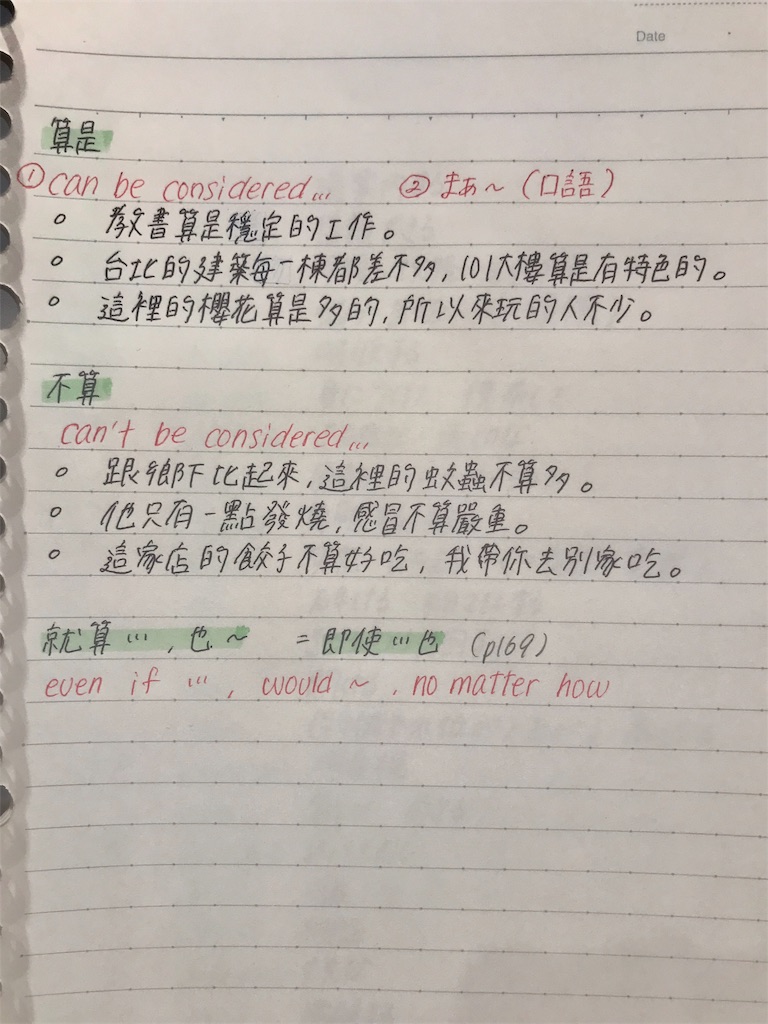 Date
算是
①can be considered... ② まぁ～（口語）
。 教書算是穩定的工作。
。 台北的建築每一棟都差不多，101大樓算是有特色的。
。 這裡的櫻花算是多的，所以來玩的人不少。
不算
can't be considered...
。 跟鄉下比起來，這裡的蚊蟲不算多。
。 他只有一點發燒，感冒不算嚴重。
。 這家店的餃子不算好吃，我帶你去別家吃。
就算…，也～ = 即使…也 (p169)
even if …, would ~ , no matter how